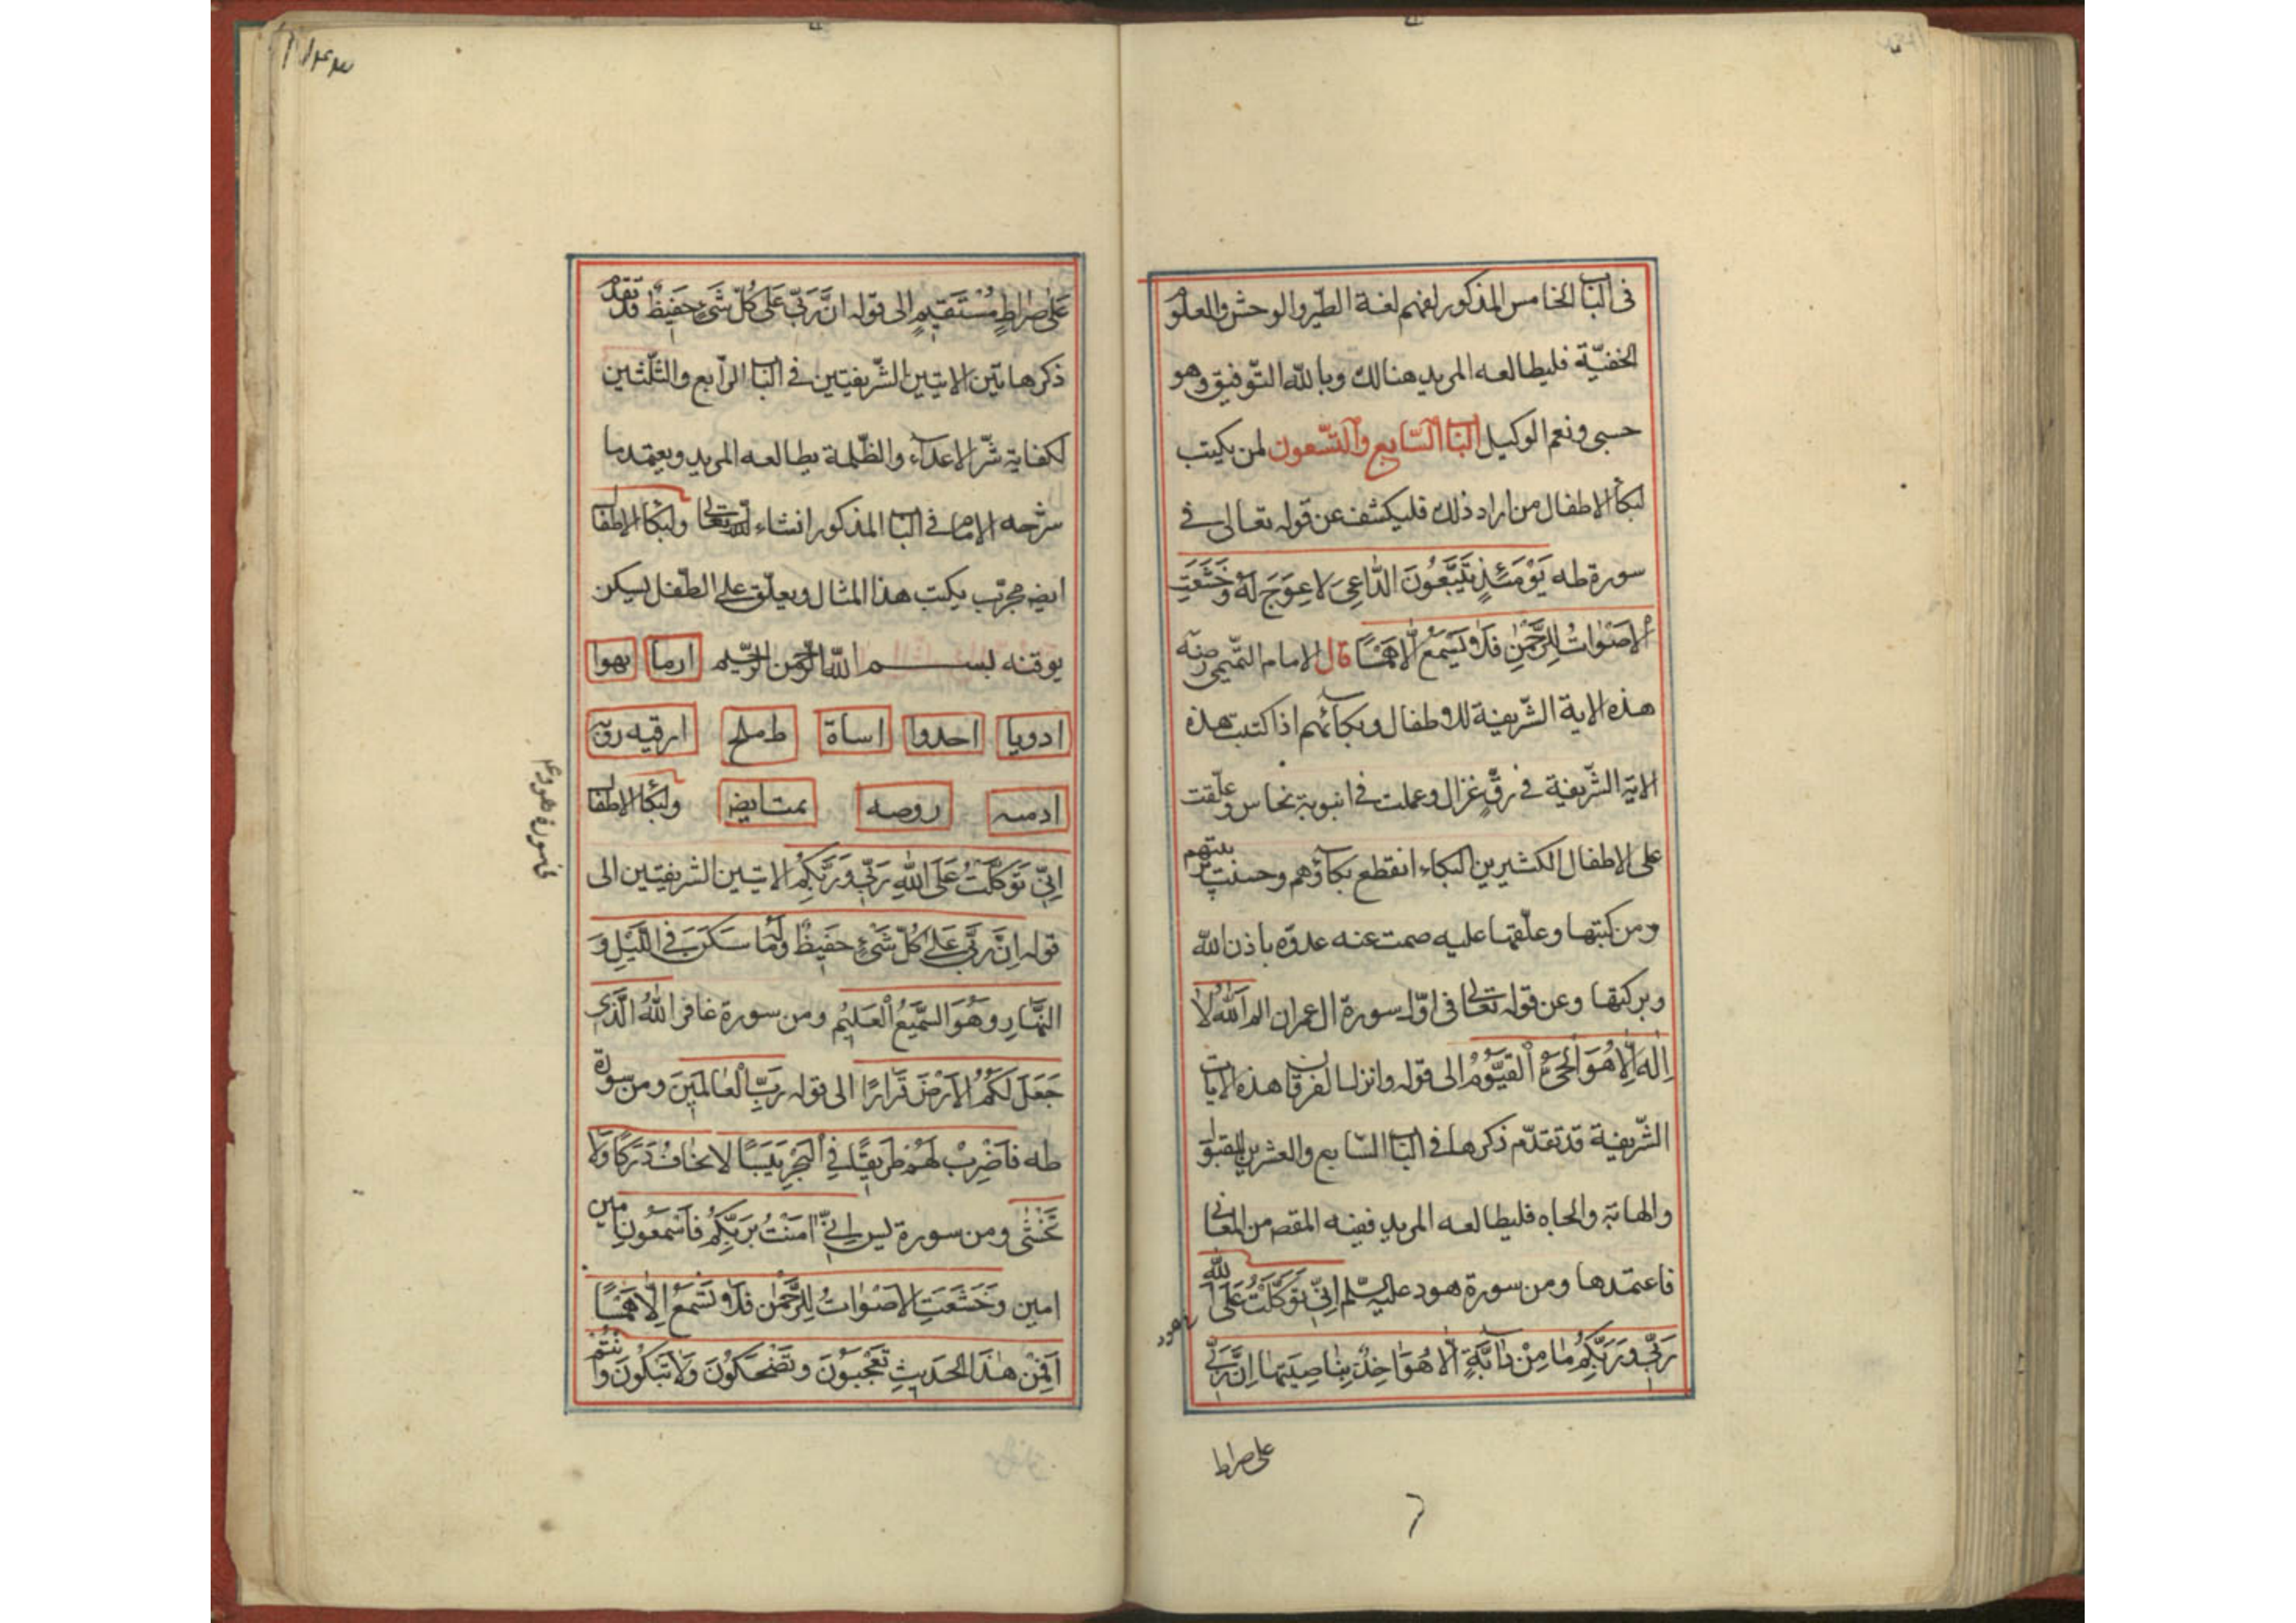 في الباب الخامس المذكور لفهم لغة الطّير والوحش والعلوم
الخفيّة فليطالعه المريد هنالك وبالله التّوفيق وهو
حسبى ونعم الوكيل الباب السّابع والتّسعون لمن يكتب
لبكاء الاطفال من اراد ذلك فليكشف عن قوله تعالى في
سورة طه يَوْمَئِذٍ يَتَّبِعُونَ الدّاعِىَ لاعِوَجَ لَهُ وَخَشَعَتِ
الاَصْوٰاتُ لِلرَّحْمٰنِ فَلاٰ تَسْمَعُ اِلّاٰ هَمْسًا قال الامام التّميمى رضه
هذه الاية الشّريفة للاطفال وبكائهم اذا كتبت هذه
الاية الشّريفة في رقّ غزال وعملت في انبوبة نحاس وعلّقت
على الاطفال الكثيرين البكاء انقطع بكاؤهم وحسنت تربيتهم
ومن كتبها وعلّقها عليه صمت عنه عدوّه باذن الله
وبركتها وعن قوله تعالى في اوّل سورة ال عمران الم اَللهُ لاٰ
اِلٰهَ اِلّاٰ هُوَ الْحَىُّ الْقَيُّوْمُ الى قوله وانزل الفرقان هذه الايات
الشّريفة قد تقدّم ذكرها في الباب السّابع والعشرين للقبول
والهابة والجاه فليطالعه المريد ففيه المقصد من المعاني
فاعتمدها ومن سورة هود عليه السّلم اِنّى تَوَكَّلْتُ عَلَى اللّٰهِ
رَبّى وَرَبِّكُمْ مٰا مِنْ دٰابَّةٍ اِلّاٰ هُوَ اٰخِذٌ بِنٰاصِيَتِهٰا اِنَّ رَبّى
على صراط
عَلىٰ صِرٰاطٍ مُسْتَقيمٍ الى قوله انَّ رَبّى عَلىٰ كُلّ شَىْءٍ حَفيظٌ قد تقدم
ذكر هاتين الايتين الشّريفتين في الباب الرّابع والثّلثين
لكفاية شرّ الاعدآء والظّلمة يطالعه المريد ويعتمد ما
شرحه الامام في الباب المذكور انشاء الله تعالى ولبكاء الاطفال
ايضه مجرّب يكتب هذا المثال ويعلّق على الطّفل ليسكن
بوقته بسم الله الرّحمن الرّحيم ارما بهوا
ادويا احدوا اساة طملح ارقيه رق
ادمسه روصه عمتايض ولبكاء الاطفال
اِنّى تَوَكَّلْتُ عَلَى اللّٰهِ رَبّى وَرَبِّكُمْ الايتين الشريفتين الى
قوله اِنَّ رَبّى عَلىٰ كُلّ شَىْءٍ حَفيظٌ وَلَهُ مٰا سَكَنَ فِى اللَّيْلِ وَ
النَّهٰارِ وَهُوَ السَّميعُ الْعَليمُ ومن سورة غافر اَللّٰهُ الَّذى
جَعَلَ لَكُمُ الاَرْضَ قَرٰارًا الى قوله رَبِّ الْعٰالَمينَ ومن سورة
طه فَاضْرِبْ لَهُمْ طَريقًا فِى الْبَحْرِ يَبَسًا لاتخافُ دَرَكًا وَلاٰ
تَخْشٰى ومن سورة يس اِنّى اٰمَنْتُ بِرَبِّكُمْ فَاسْمَعُونِ امين
امين وَخَشَعَتِ الاَصْوٰاتُ لِلرَّحْمٰنِ فَلاٰ تَسْمَعُ اِلّاٰ هَمْسًا
اَفَمِنْ هٰذَا الْحَديثِ تَعْجَبُونَ وَتَضْحَكُونَ وَلاٰ تَبْكُونَ وَاَنْتُمْ
في سورة هود ع م